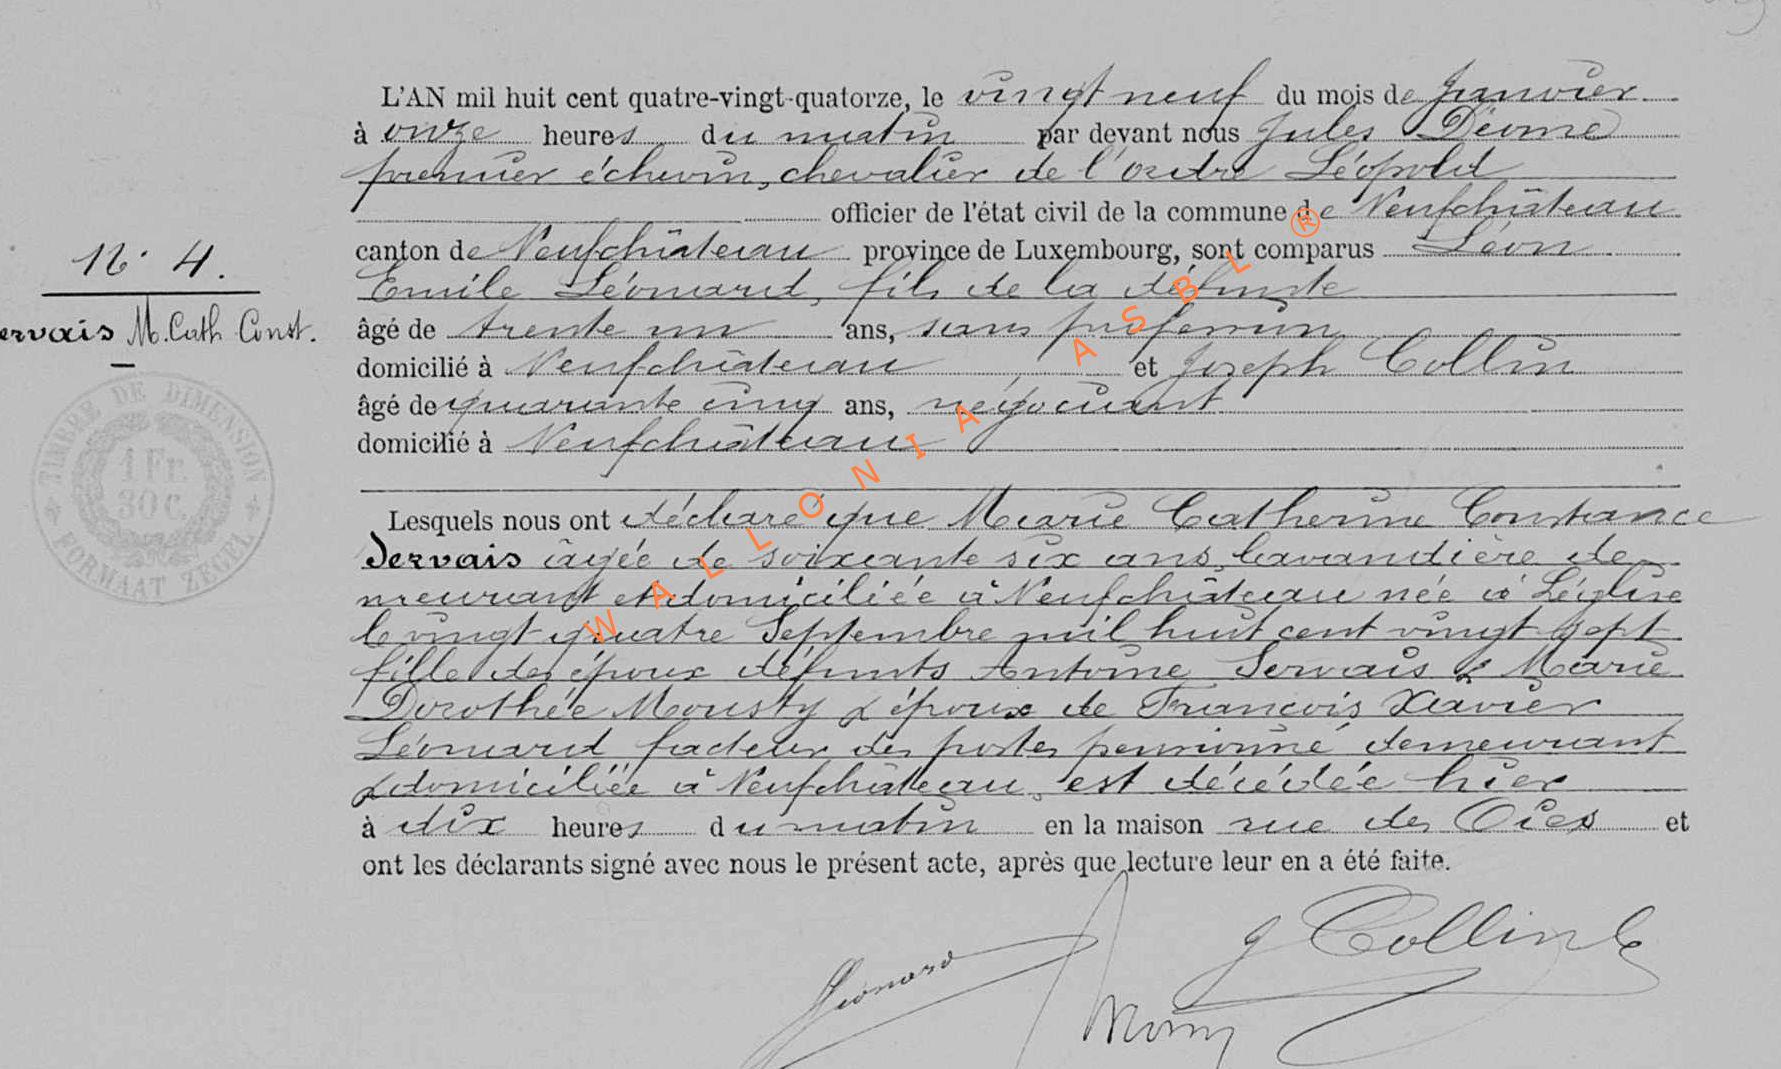 L'AN mil huit cent quatre-vingt-quatorze, le vingt neuf du mois de Janvier
à onze heures du matin par devant nous Jules Diome
premier échevin, chevalier de l'ordre Léopold
officier de l'état civil de la commune de Neufchâteau
canton de Neufchâteau province de Luxembourg, sont comparus Léon
Emile Léonard, fils de la défunte
âgé de trente un ans, sans profession
domicilié à Neufchâteau et Joseph Collin
âgé de quarante cinq ans, négociant
domicilié à Neufchâteau
N° 4.
ervais M. Cath Const.
TIMBRE DE DIMENSION
1 Fr.
30 C.
FORMAAT ZEGEL
WALLONIA ASBL ®
Lesquels nous ont déclaré que Marie Catherine Constance
Servais âgée de soixante six ans, lavandière de
meurant et domiciliée à Neufchâteau née à Léglise
le vingt quatre Septembre mil huit cent vingt sept
fille des époux défunts Antoine Servais & Marie
Dorothée Mousty & épouse de François Xavier
Léonard facteur des postes pensionné demeurant
& domiciliée à Neufchâteau, est décédée hier
à dix heures du matin en la maison rue des Oies et
ont les déclarants signé avec nous le présent acte, après que lecture leur en a été faite.
J Collin
Léonard